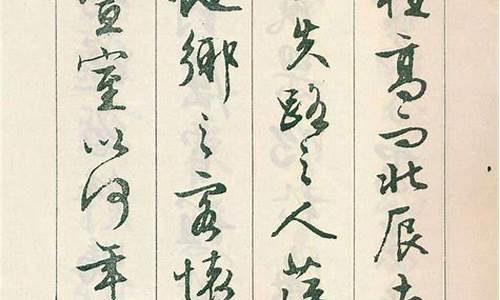 柱高而北辰远
失路之人萍
他乡之客怀
宣室以何年